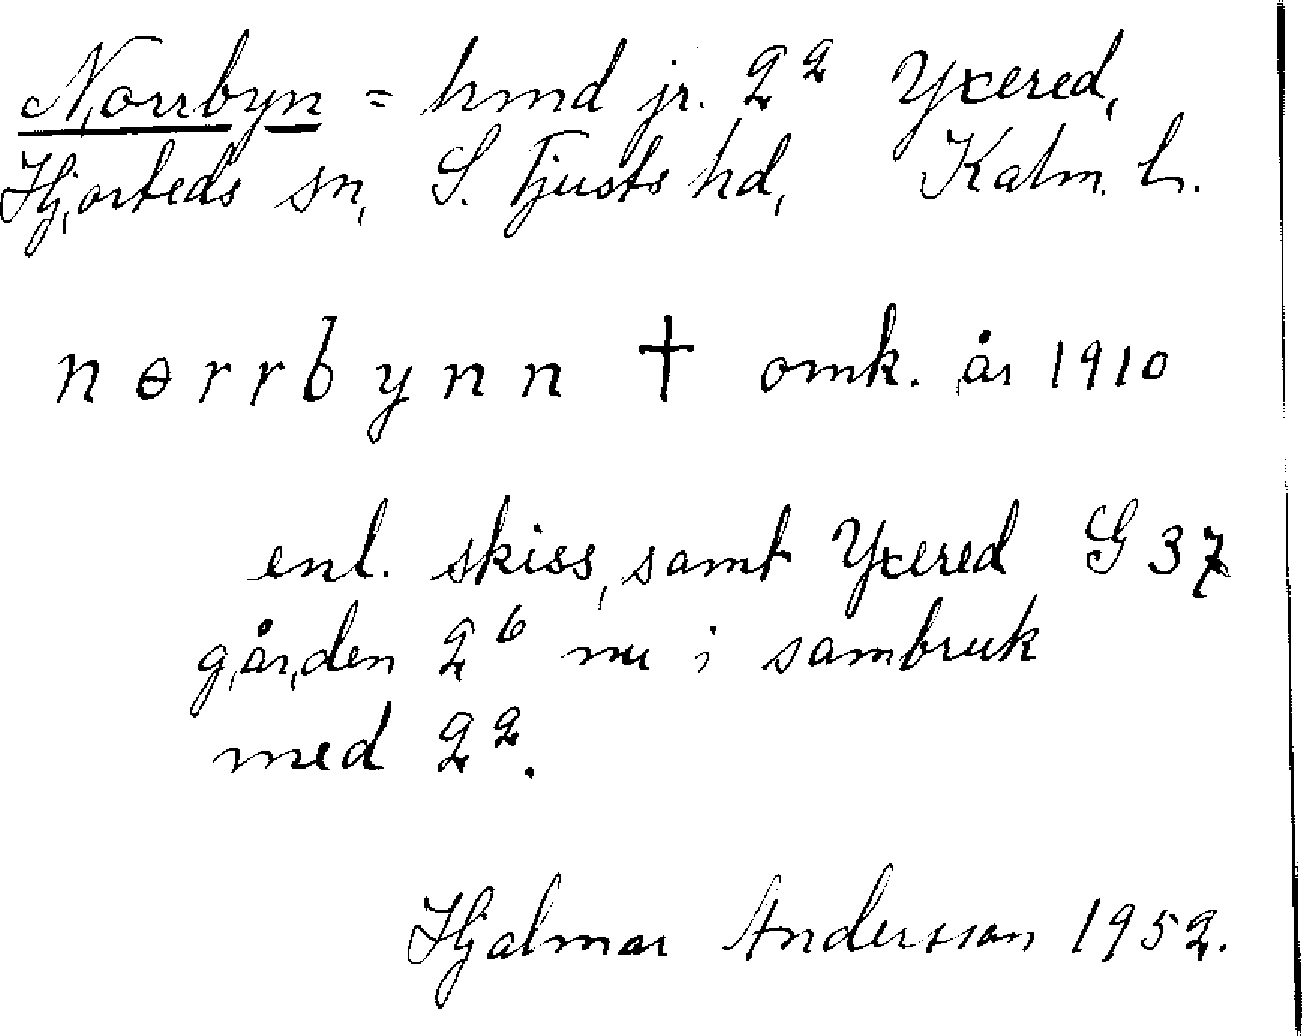 Norrbyn = hmd jr. 2² Yxered,
Hjorteds sn, S. Tjusts hd, Kalm. L.
nɵrrbynn † omk. år 1910
enl. skiss, samt Yxered G 37
gården 2⁶ nu i sambruk
med 2².
Hjalmar Andersson 1952.